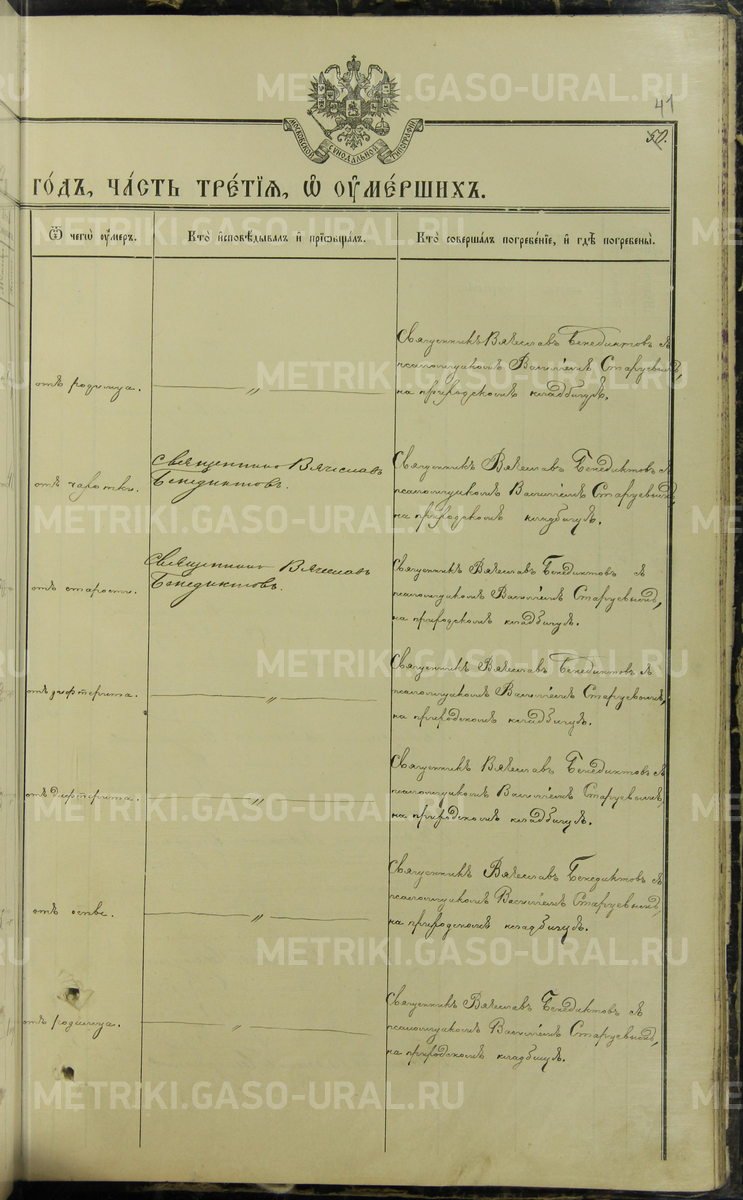 METRIKI.GASO-URAL.RU
41
МОСКОВСКОЙ СѴНОДАЛЬНОЙ ТИПОГРАФІИ
50.
ГО́ДЪ, ЧА́СТЬ ТРЕ́ТІѦ, Ѡ ОУМЕ́РШИХЪ.
Ѿ чегѡ̀ оу́меръ.
Кто̀ и҆сповѣ́дывалъ и҆ прїѡбща́лъ.
Кто̀ соверша́лъ погребе́нїе, и҆ гдѣ̀ погребены̀.
METRIKI.GASO-URAL.RU
Священникъ Вячеславъ Бенедиктовъ съ
псаломщикомъ Василіемъ Старцевымъ,
отъ родимца.
— „ —
на приходскомъ кладбищѣ.
METRIKI.GASO-URAL.RU
отъ чахотки.
Священникъ Вячеславъ
Бенедиктовъ.
Священникъ Вячеславъ Бенедиктовъ съ
псаломщикомъ Василіемъ Старцевымъ,
на приходскомъ кладбищѣ.
METRIKI.GASO-URAL.RU
отъ старости.
Священникъ Вячеславъ
Бенедиктовъ.
Священникъ Вячеславъ Бенедиктовъ съ
псаломщикомъ Василіемъ Старцевымъ,
на приходскомъ кладбищѣ.
METRIKI.GASO-URAL.RU
отъ дифтерита.
— „ —
Священникъ Вячеславъ Бенедиктовъ съ
псаломщикомъ Василіемъ Старцевымъ,
на приходскомъ кладбищѣ.
METRIKI.GASO-URAL.RU
отъ дифтерита.
— „ —
Священникъ Вячеславъ Бенедиктовъ съ
псаломщикомъ Василіемъ Старцевымъ,
на приходскомъ кладбищѣ.
отъ оспы.
— „ —
Священникъ Вячеславъ Бенедиктовъ съ
псаломщикомъ Василіемъ Старцевымъ,
на приходскомъ кладбищѣ.
METRIKI.GASO-URAL.RU
отъ родимца.
— „ —
Священникъ Вячеславъ Бенедиктовъ съ
псаломщикомъ Василіемъ Старцевымъ,
на приходскомъ кладбищѣ.
METRIKI.GASO-URAL.RU